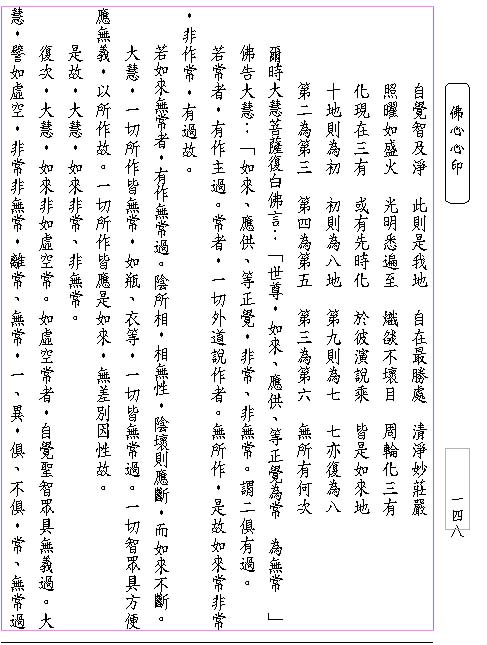 佛心心印
一四八
自覺智及淨　此則是我地　自在最勝處　清淨妙莊嚴
照曜如盛火　光明悉遍至　熾燄不壞目　周輪化三有
化現在三有　或有先時化　於彼演說乘　皆是如來地
十地則為初　初則為八地　第九則為七　七亦復為八
第二為第三　第四為第五　第三為第六　無所有何次
爾時大慧菩薩復白佛言：「世尊，如來、應供、等正覺為常　為無常　」
佛告大慧：「如來、應供、等正覺，非常、非無常。謂二俱有過。
若常者，有作主過。常者，一切外道說作者。無所作，是故如來常非常
，非作常，有過故。
若如來無常者，有作無常過。陰所相，相無性，陰壞則應斷，而如來不斷。
大慧，一切所作皆無常，如瓶、衣等，一切皆無常過。一切智眾具方便
應無義，以所作故。一切所作皆應是如來，無差別因性故。
是故，大慧　如來非常、非無常。
復次，大慧，如來非如虛空常。如虛空常者，自覺聖智眾具無義過。大
慧，譬如虛空，非常非無常，離常、無常，一、異，俱、不俱，常、無常過